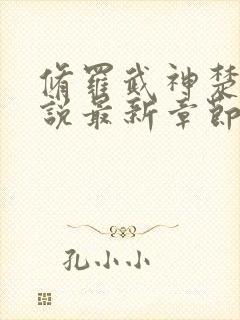 脩羅武神楚
說最新章節
孔小小